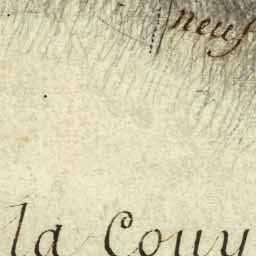 neuf
la Couy